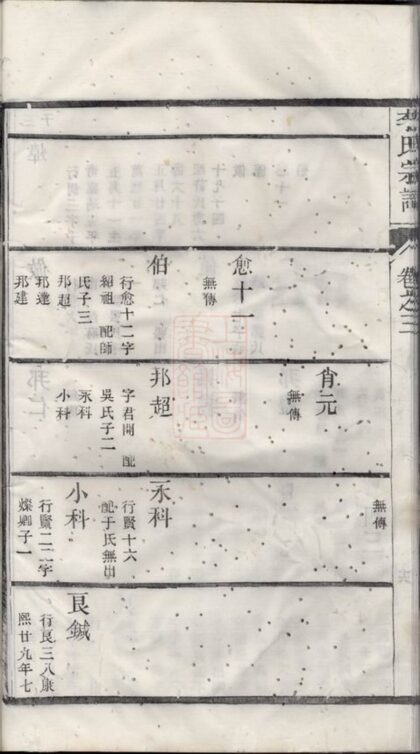 氏宗譜
卷之三
愈十一
無傳
伯
行愈十二字
紹祖 配師
氏子三
邦超
邦達
邦建
肖元
無傳
邦超
字君開 配
吳氏子二
永科
小科
無傳
永科
行賢十六
配于氏無出
小科
行賢二二字
燦卿子一
艮鋮
行艮三八康
熙廿九年七